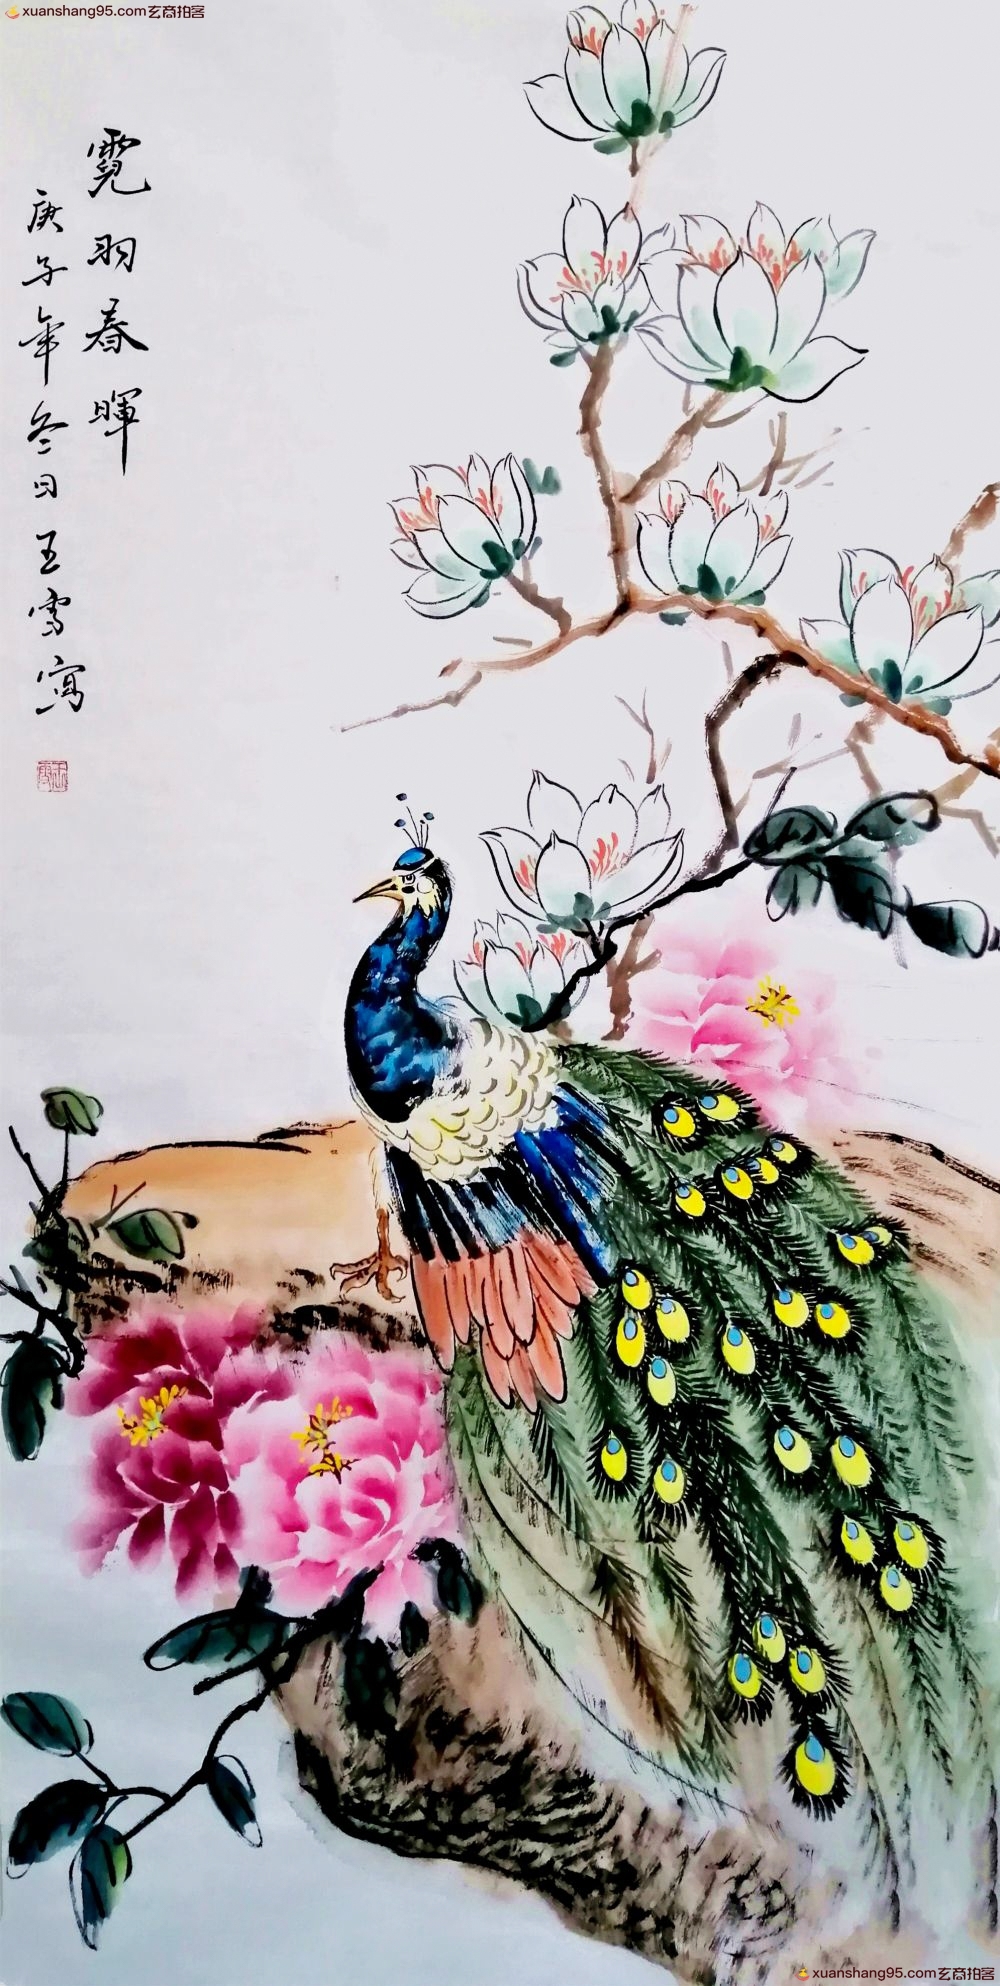 xuanshang95.com玄商拍客
霓羽春暉
庚子年冬日王雪寫
xuanshang95.com玄商拍客